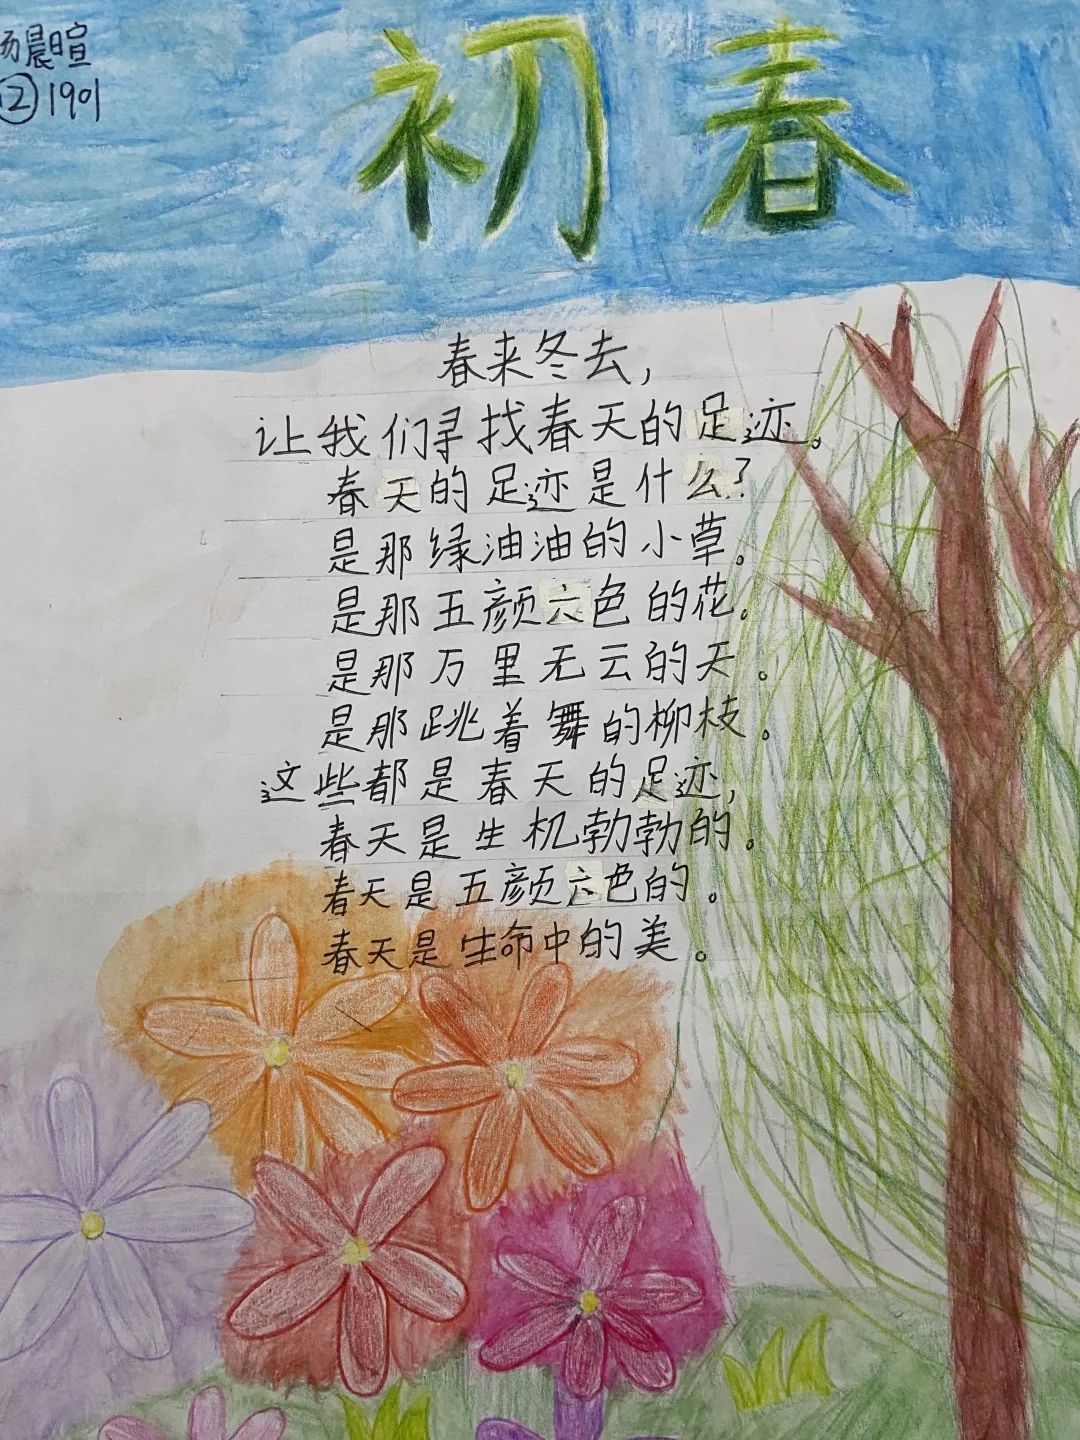 晨暄
②1901
初春
春来冬去，
让我们寻找春天的足迹。
春天的足迹是什么？
是那绿油油的小草。
是那五颜六色的花。
是那万里无云的天。
是那跳着舞的柳枝。
这些都是春天的足迹，
春天是生机勃勃的。
春天是五颜六色的。
春天是生命中的美。